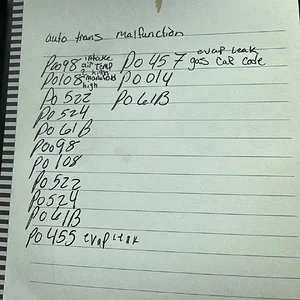 auto trans malfunction
P0098 intake air temp high
P0108 manifold high
P0522
P0524
P061B
P0098
P0108
P0522
P0524
P061B
P0455 evap leak
P0457 evap leak gas cap code
P0014
P061B